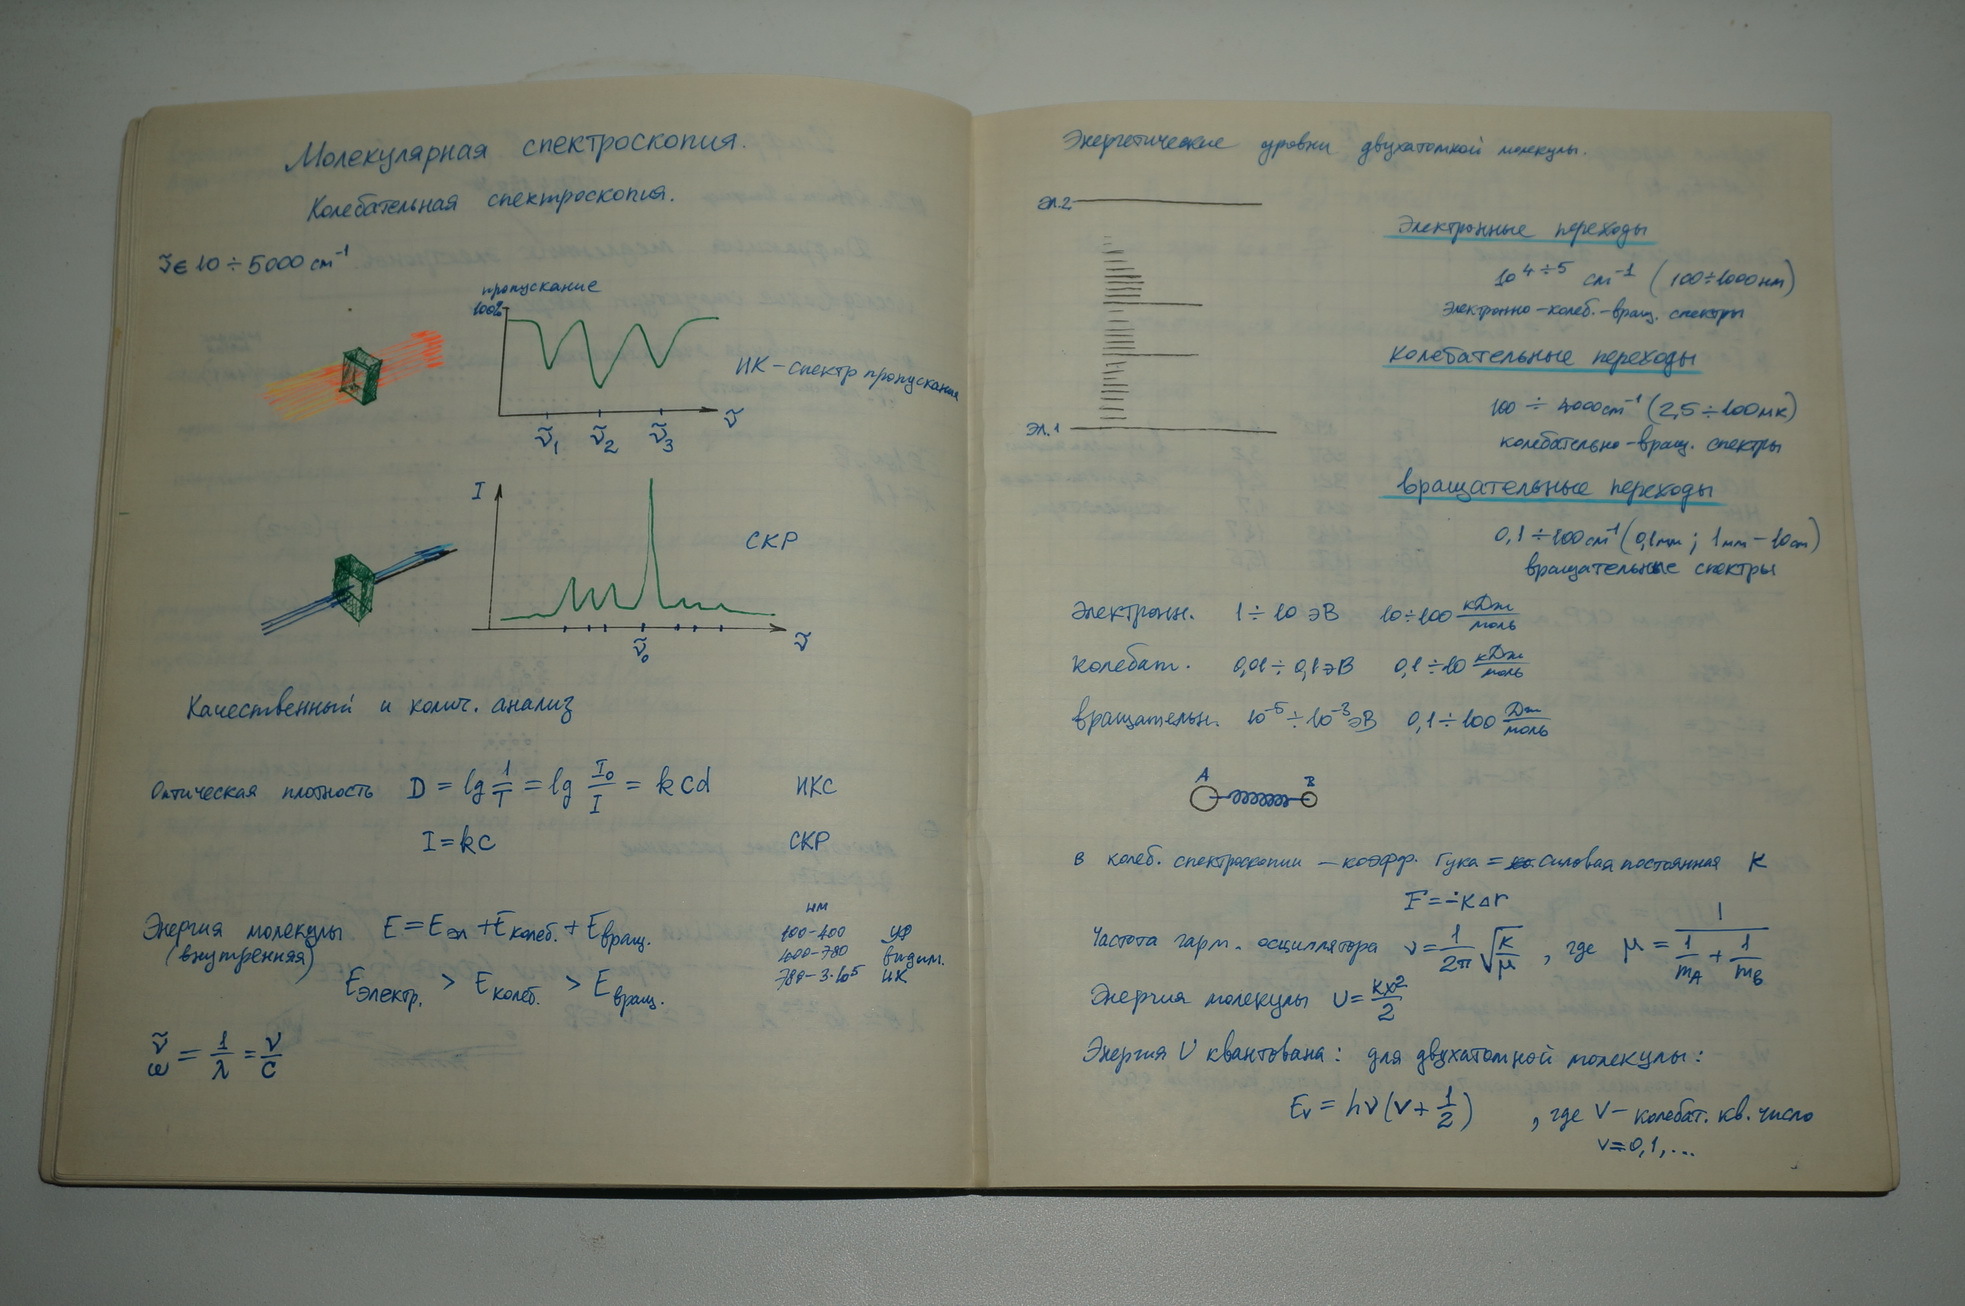 Молекулярная спектроскопия.
Колебательная спектроскопия.
10 ÷ 5000 cm⁻¹
пропускание
100%
ИК – спектр пропускания
ν̃₁ ν̃₂ ν̃₃ ν̃
I
СКР
ν̃₀ ν̃
Качественный и колич. анализ
Оптическая плотность D = lg 1/T = lg I₀/I = kcd ИКС
I = kc СКР
Энергия молекулы E = Eэл + Eколеб. + Eвращ.
(внутренняя)
Eэлектр. > Eколеб. > Eвращ.
нм
100-400 УФ
400-780 видим.
780-3·10⁵ ИК
ν̃
ω = 1/λ = ν/c
Энергетические уровни двухатомной молекулы.
Эл.2
Эл.1
Электронные переходы
10⁴÷⁵ cm⁻¹ (100÷1000 нм)
Электронно-колеб.-вращ. спектры
Колебательные переходы
100 ÷ 4000 cm⁻¹ (2,5 ÷ 100 мк)
колебательно-вращ. спектры
вращательные переходы
0,1 ÷ 100 cm⁻¹ (0,1мм ; 1мм – 10cm)
вращательные спектры
электронн. 1 ÷ 10 эВ 10÷100 кДж/моль
колебат. 0,01 ÷ 0,1 эВ 0,1 ÷ 10 кДж/моль
вращательн. 10⁻⁵ ÷ 10⁻³ эВ 0,1 ÷ 100 Дж/моль
A B
в колеб. спектроскопии – коэфф. Гука = силовая постоянная K
F = -KΔr
Частота гарм. осциллятора ν = 1/2π √K/μ , где μ = 1/(1/mA + 1/mB)
Энергия молекулы U = Kx²/2
Энергия U квантована: для двухатомной молекулы:
Ev = hν(v + 1/2) , где V – колебат. кв. число
v = 0,1,...